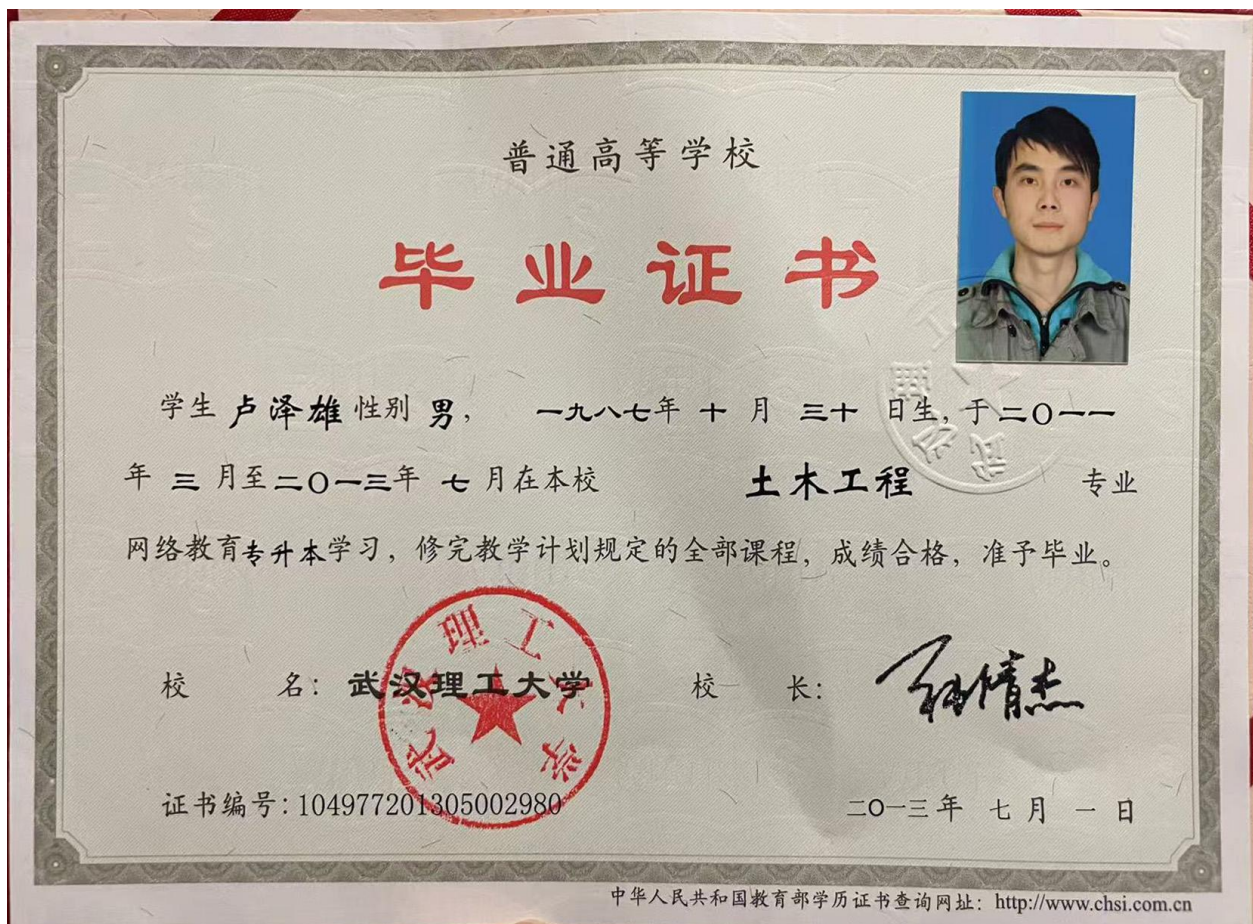 普通高等学校
毕业证书
学生 卢泽雄 性别 男， 一九八七年 十 月 三十 日生，于二〇一一
年 三 月至二〇一三年 七 月在本校 土木工程 专业
网络教育专升本学习，修完教学计划规定的全部课程，成绩合格，准予毕业。
校 名：武汉理工大学 校 长：
武汉理工大学
证书编号：104977201305002980
二〇一三年 七月 一日
中华人民共和国教育部学历证书查询网址：http://www.chsi.com.cn